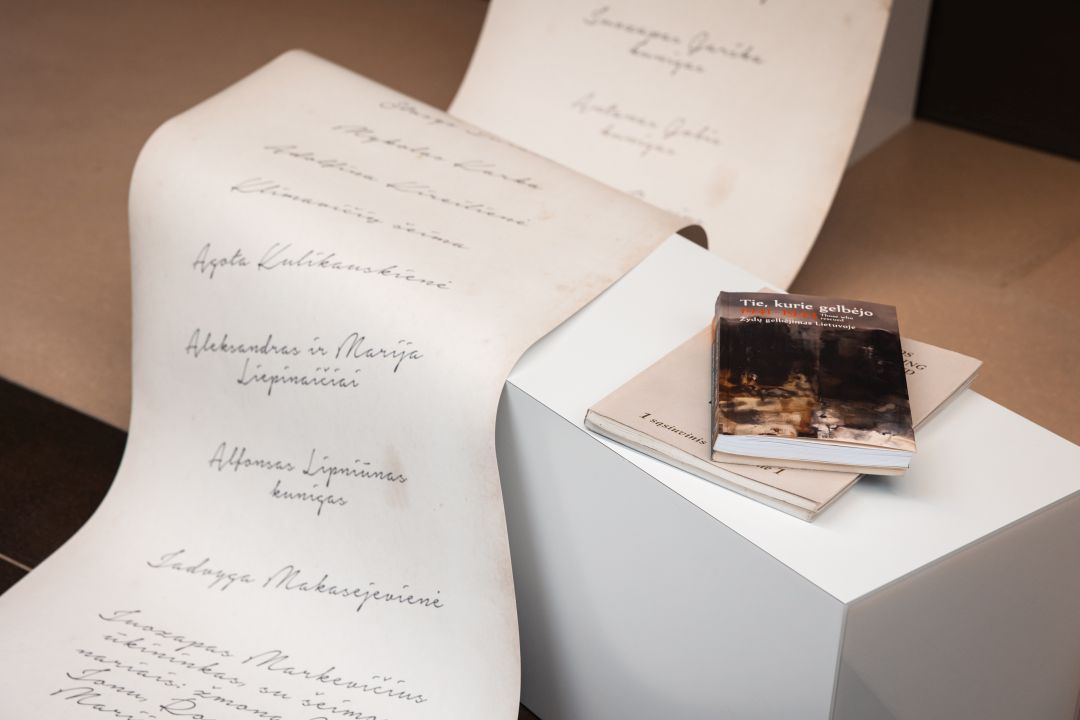 Juozapas Garška
kunigas
Antanas Gobis
kunigas
Mykolas Karka
Adolfina Kireilienė
Klimavičių šeima
Agota Kulikauskienė
Aleksandras ir Marija
Liepinaičiai
Alfonsas Lipniūnas
kunigas
Jadvyga Makasejevienė
Juozapas Markevičius
ūkininkas, su šeimos
nariais: žmona
Jonu,
Tie, kurie gelbėjo
1941-1944 Those who
rescued
Žydų gelbėjimas Lietuvoje
1 sąsiuvinis